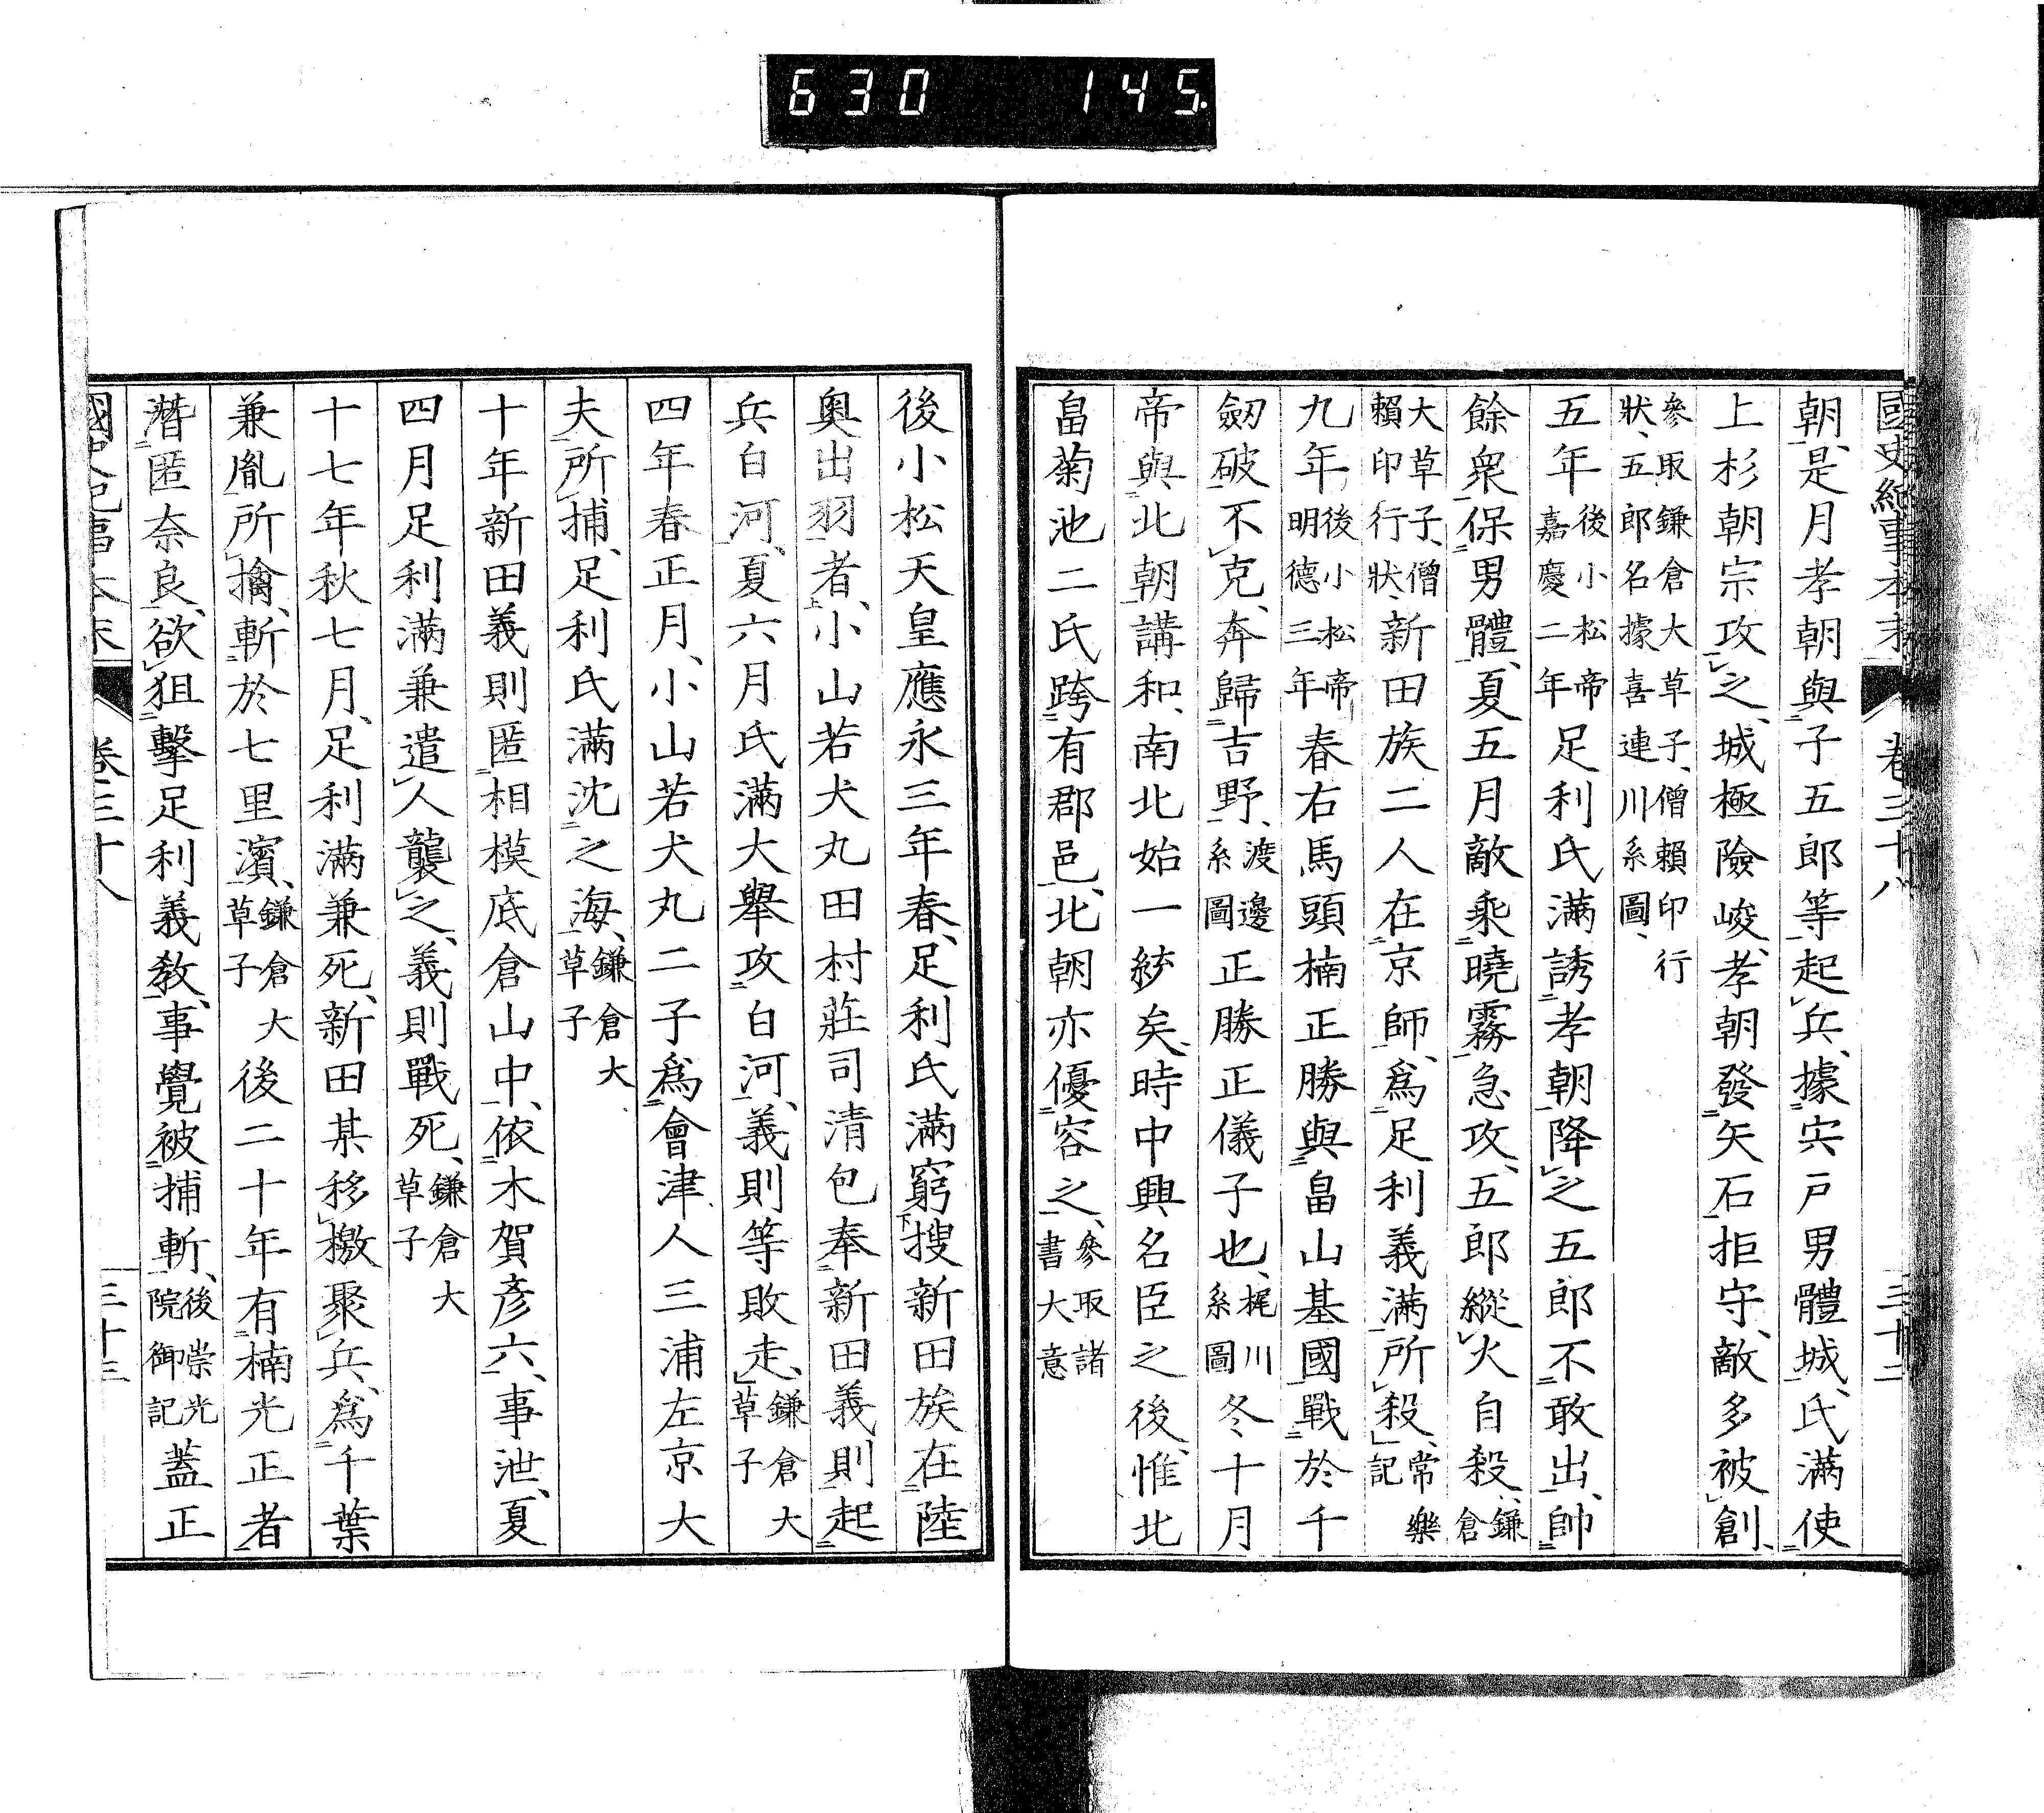 630 145.
國史紀事本末 卷三十八 三十二
朝、是月孝朝與子五郎等起兵、據宍戸男體城、氏滿使
上杉朝宗攻之、城極險峻、孝朝發矢石拒守、敵多被創、
參取鎌倉大草子、僧賴印行
狀、五郎名據喜連川系圖、
五年後小松帝嘉慶二年足利氏滿誘孝朝降之五郎不敢出、帥
餘衆保男體、夏五月敵乘曉霧急攻、五郎縱火自殺、鎌倉
大草子、僧賴印行狀、新田族二人在京師、爲足利義滿所殺、常樂記
九年後小松帝明德三年春右馬頭楠正勝與畠山基國戰於千
劒破不克、奔歸吉野、渡邊系圖正勝正儀子也、梶川系圖冬十月
帝與北朝講和、南北始一統矣、時中興名臣之後、惟北
畠菊池二氏跨有郡邑、北朝亦優容之、參取諸書大意
後小松天皇應永三年春、足利氏滿窮搜新田族在陸
奥出羽者、小山若犬丸田村莊司清包奉新田義則起
兵白河、夏六月氏滿大舉攻白河、義則等敗走、鎌倉大草子
四年春正月、小山若犬丸二子爲會津人三浦左京大
夫所捕、足利氏滿沈之海、鎌倉大草子
十年新田義則匿相模底倉山中、依木賀彦六、事泄、夏
四月足利滿兼遣人襲之、義則戰死、鎌倉大草子
十七年秋七月、足利滿兼死、新田某移檄聚兵、爲千葉
兼胤所擒、斬於七里濱、鎌倉大草子後二十年有楠光正者
潛匿奈良、欲狙擊足利義敎、事覺被捕斬、後崇光院御記蓋正
國史紀事本末 卷三十八 三十三